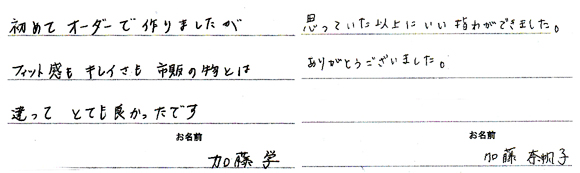 初めて オーダーで作りましたが
フィット感も キレイさも 市販の物とは
違って とても良かったです
お名前
加藤 学
思っていた以上にいい指わができました。
ありがとうございました。
お名前
加藤 奈帆子